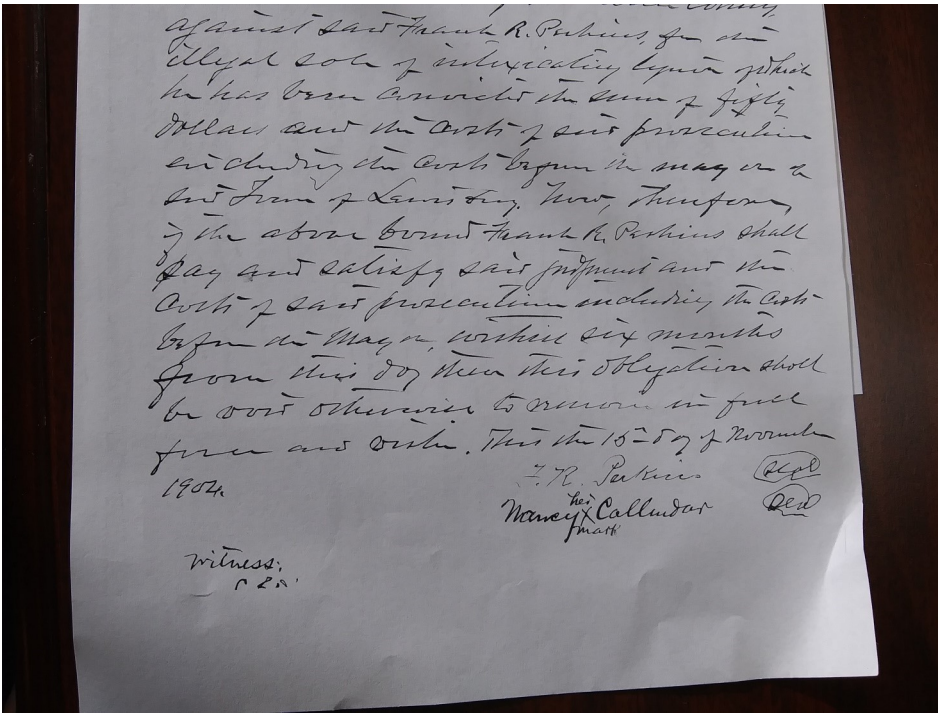 against said Frank R. Perkins, for the
illegal sale of intoxicating liquor of which
he has been convicted the sum of fifty
dollars and the costs of said prosecution
including the costs before the mayor of
said Town of Lewisburg. Now, therefore,
if the above bound Frank R. Perkins shall
pay and satisfy said judgment and the
costs of said prosecution including the costs
before the Mayor, within six months
from this day then this obligation shall
be void otherwise to remain in full
force and virtue. This the 15 day of November
1904.
F. R. Perkins (seal)
her
Nancy X Callendar (seal)
mark
Witness: